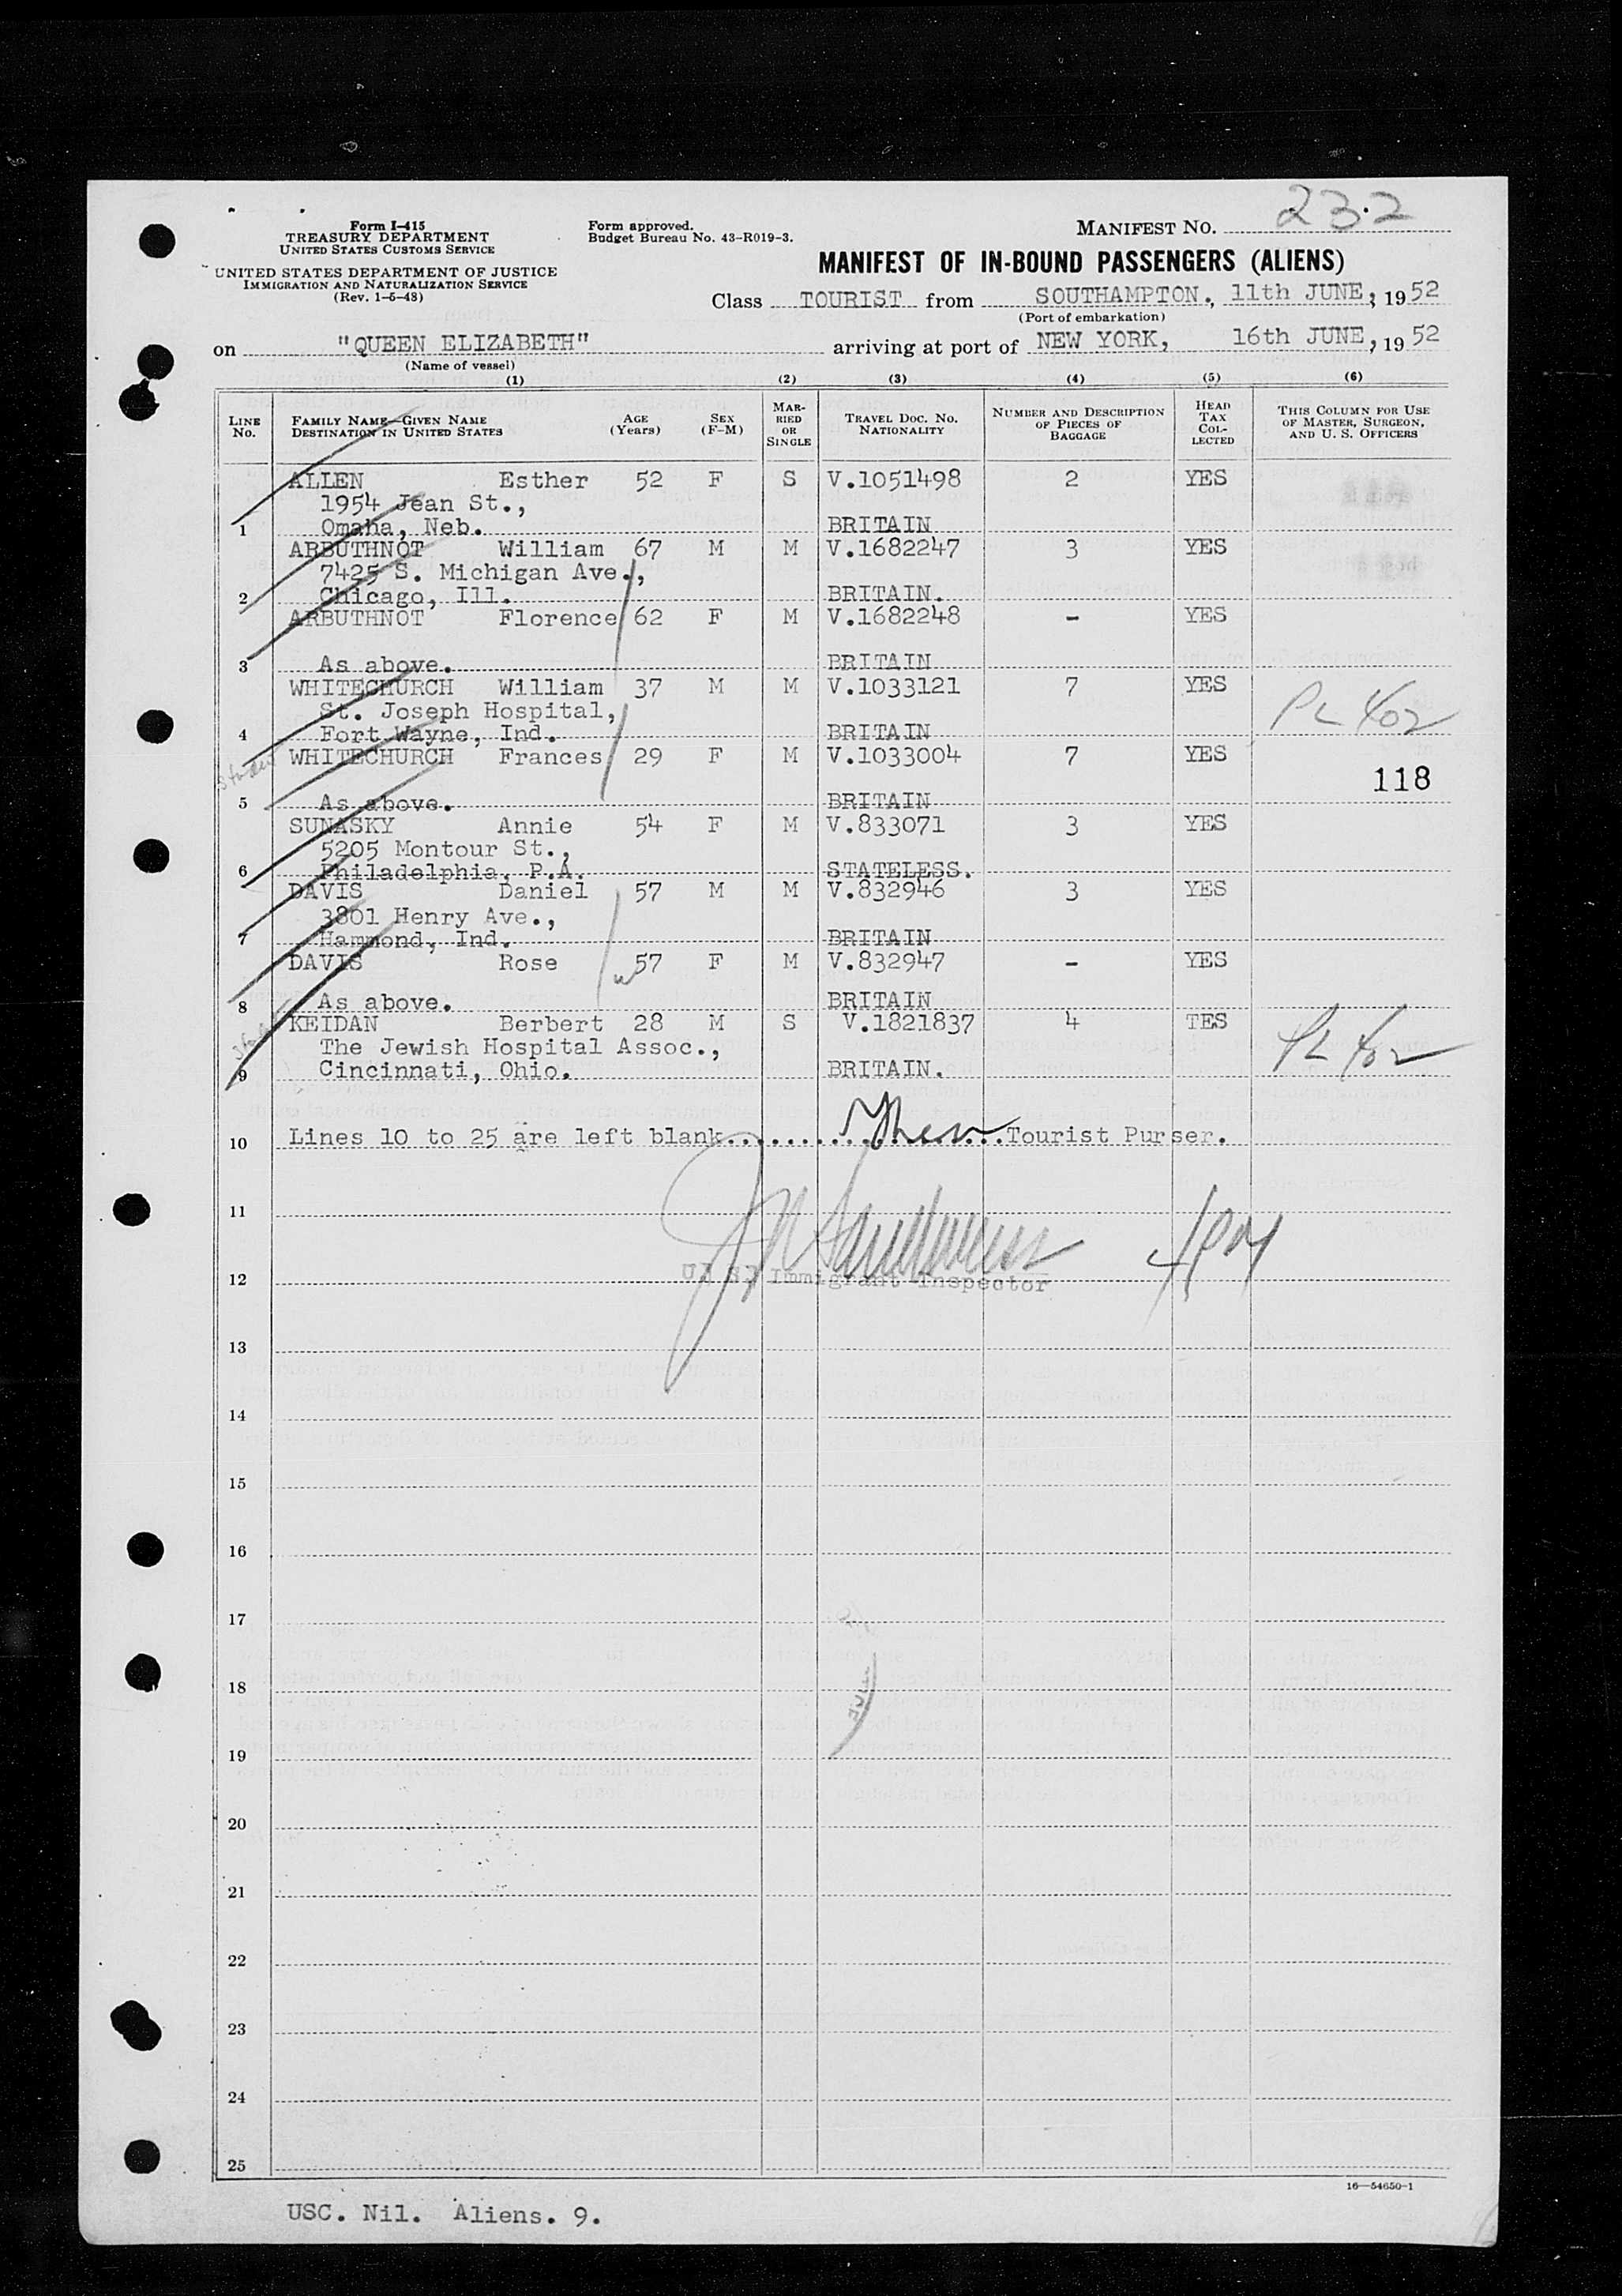 Form I-415
TREASURY DEPARTMENT
UNITED STATES CUSTOMS SERVICE
UNITED STATES DEPARTMENT OF JUSTICE
IMMIGRATION AND NATURALIZATION SERVICE
(Rev. 1-6-48)
Form approved.
Budget Bureau No. 43-R019-3.
MANIFEST NO. 232
MANIFEST OF IN-BOUND PASSENGERS (ALIENS)
Class TOURIST from SOUTHAMPTON., 11th JUNE, 1952
(Port of embarkation)
on "QUEEN ELIZABETH" arriving at port of NEW YORK, 16th JUNE, 1952
(Name of vessel)
(1) (2) (3) (4) (5) (6)
LINE No. FAMILY NAME—GIVEN NAME DESTINATION IN UNITED STATES AGE (Years) SEX (F-M) MARRIED OR SINGLE TRAVEL DOC. NO. NATIONALITY NUMBER AND DESCRIPTION OF PIECES OF BAGGAGE HEAD TAX COLLECTED THIS COLUMN FOR USE OF MASTER, SURGEON, AND U. S. OFFICERS
ALLEN Esther 52 F S V.1051498 2 YES
1954 Jean St.,
1 Omaha, Neb. BRITAIN
ARBUTHNOT William 67 M M V.1682247 3 YES
7425 S. Michigan Ave.,
2 Chicago, Ill. BRITAIN.
ARBUTHNOT Florence 62 F M V.1682248 - YES
3 As above. BRITAIN
WHITECHURCH William 37 M M V.1033121 7 YES
St. Joseph Hospital, PL 402
4 Fort Wayne, Ind. BRITAIN
WHITECHURCH Frances 29 F M V.1033004 7 YES
118
5 As above. BRITAIN
SUNASKY Annie 54 F M V.833071 3 YES
5205 Montour St.,
6 Philadelphia, P.A. STATELESS.
DAVIS Daniel 57 M M V.832946 3 YES
3801 Henry Ave.,
7 Hammond, Ind. BRITAIN
DAVIS Rose 57 F M V.832947 - YES
8 As above. BRITAIN
KEIDAN Berbert 28 M S V.1821837 4 TES
The Jewish Hospital Assoc., PL 402
9 Cincinnati, Ohio. BRITAIN.
10 Lines 10 to 25 are left blank. Tourist Purser.
11
12 U. S. Immigrant Inspector
13
14
15
16
17
18
19
20
21
22
23
24
25
16—54650-1
USC. Nil. Aliens. 9.